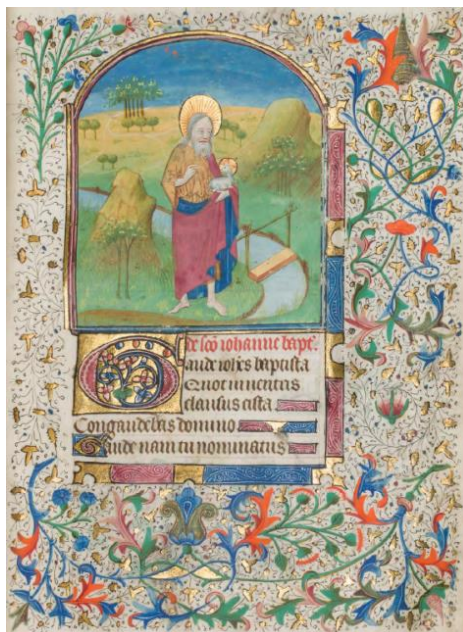 de sco iohanne bapt'.
Gaude ioh'es baptista
Quot in uentris
clausus cista
Congaudebas domino
Gaude nam tu nominatus